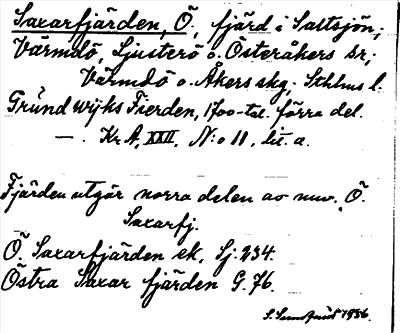 Saxarfjärden, Ö, fjärd i Saltsjön;
Värmdö, Ljusterö o. Österåkers sr;
Värmdö o. Åkers skg, Sthlms l.
Grundwijks Fierden, 1700-tal. förra del.
—. Kr. A, XXII, N:o 11, Lit. a.
Fjärden utgör norra delen av nuv. Ö.
Saxarfj.
Ö. Saxarfjärden ek, Sj. 234.
Östra Saxar fjärden G. 76.
1936.